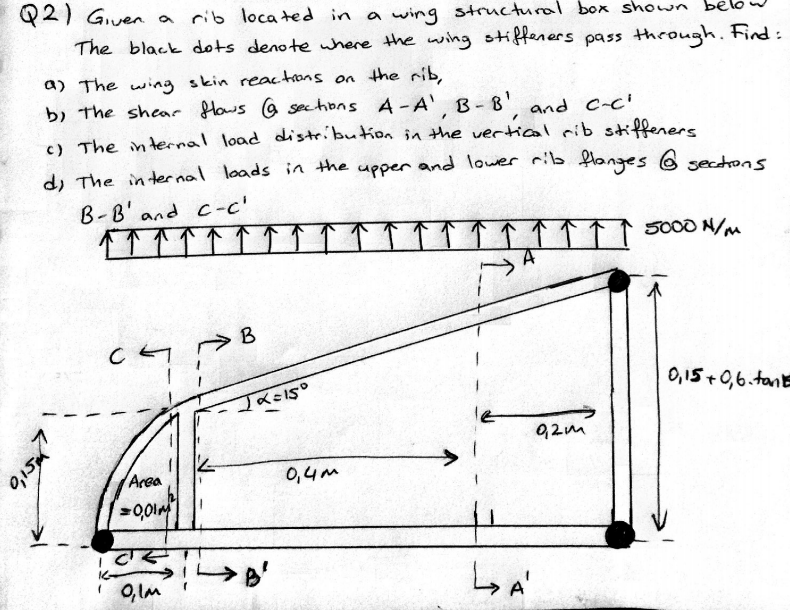 Q2) Given a rib located in a wing structural box shown below
The black dots denote where the wing stiffeners pass through. Find:
a) The wing skin reactions on the rib,
b) The shear flows @ sections A-A', B-B', and C-C'
c) The internal load distribution in the vertical rib stiffeners
d) The internal loads in the upper and lower rib flanges @ sections
B-B' and C-C'
5000 N/m
A
B
C
α=15°
0,15+0,6.tan
0,2m
0,4m
0,15m
Area
=0,01m²
C'
B'
A'
0,1m